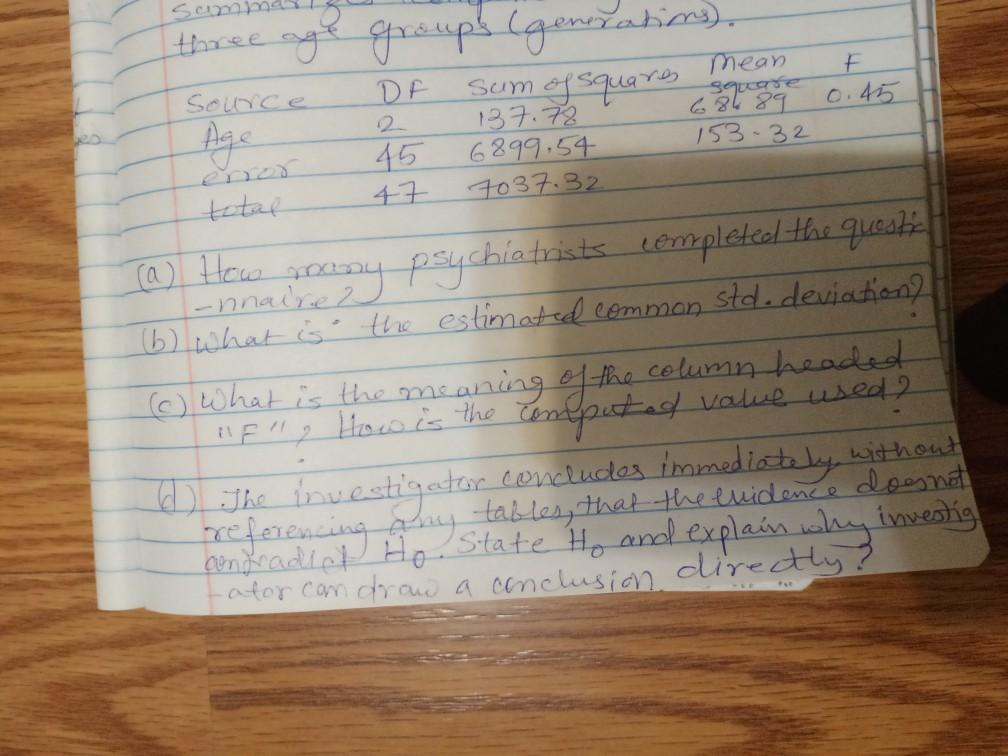 three age groups (generations).
Source DF Sum of squares Mean square F
Age 2 137.78 68.89 0.45
error 45 6899.54 153.32
total 47 7037.32
(a) How many psychiatrists completed the questi
-nnaire?
(b) What is the estimated common std. deviation?
(c) What is the meaning of the column headed
"F"? How is the computed value used?
(d) The investigator concludes immediately without
referencing any tables, that the evidence doesnot
contradict Ho. State Ho and explain why investig
-ator can draw a conclusion directly?